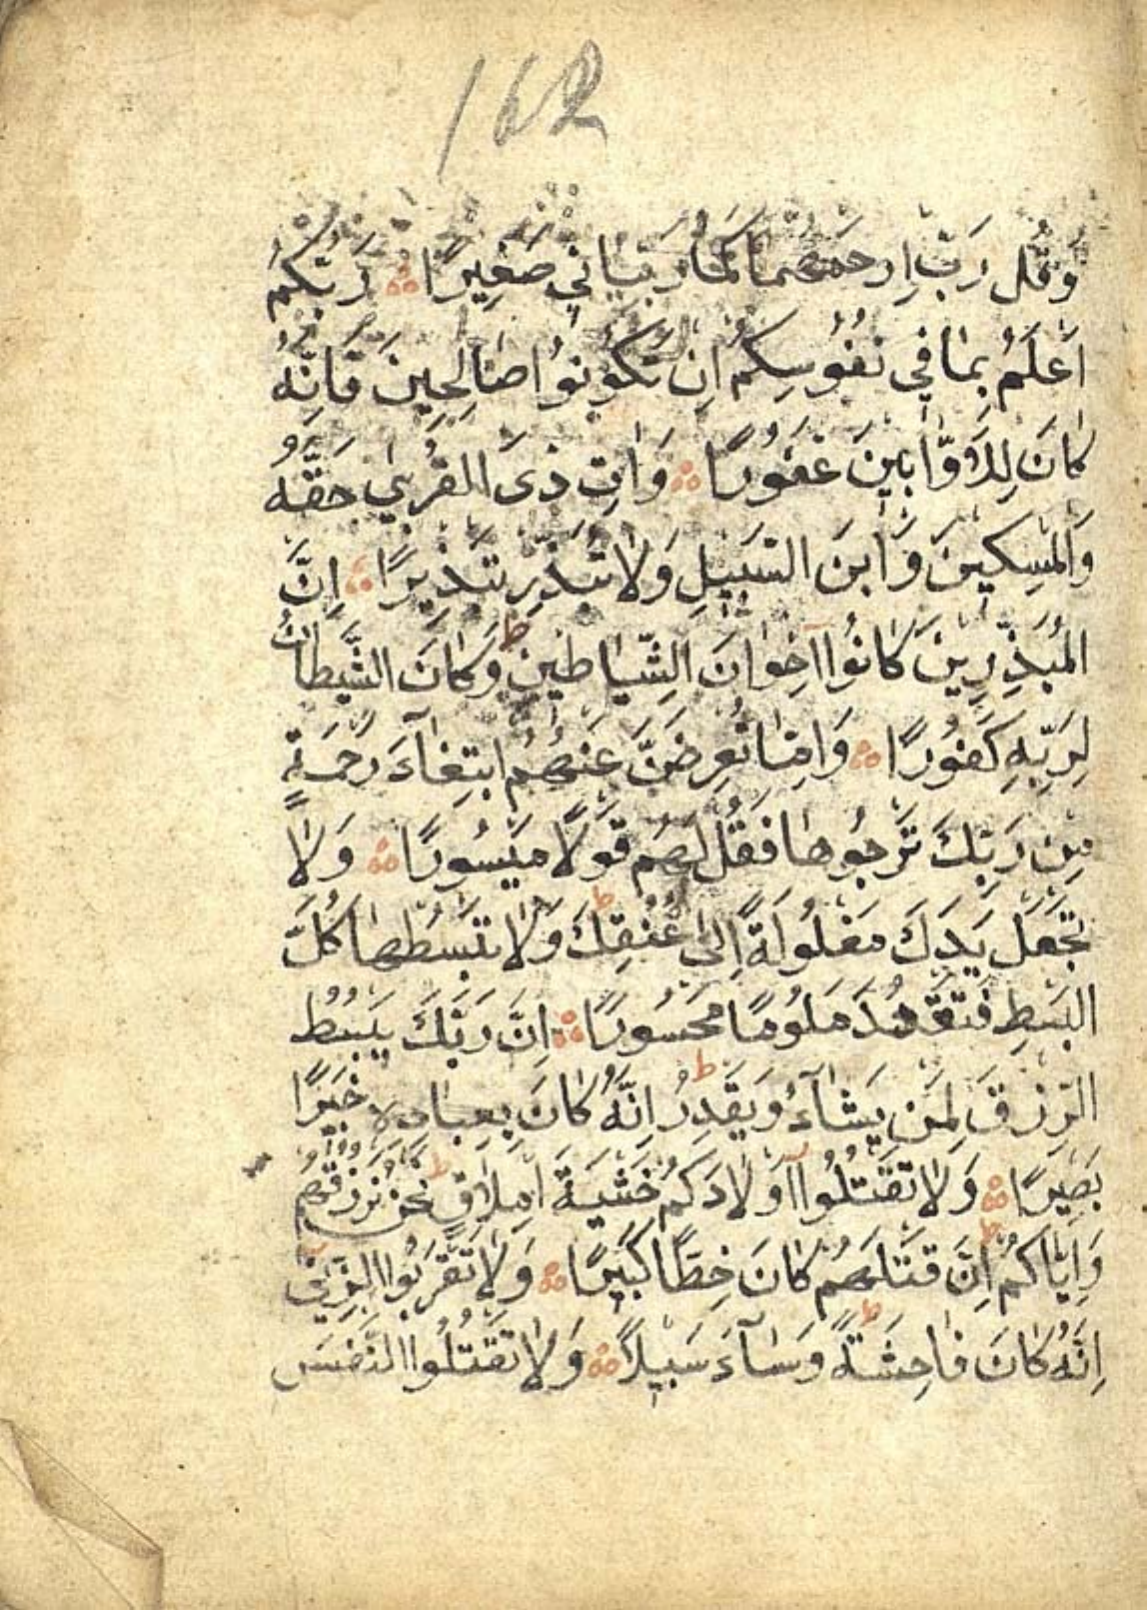 162
وَقُل رَبِّ ارحَمهُمَا كَمَا رَبَّيَانِي صَغِيرًا ؞ رَبُّكُم
اَعلَمُ بِمَا فِي نُفُوسِكُم اِن تَكُونُوا صَالِحِينَ فَاِنَّهُ
كَانَ لِلاَوَّابِينَ غَفُورًا ؞ وَاٰتِ ذِى القُربٰي حَقَّهُ
وَالمِسكِينَ وَابنَ السَّبِيلِ وَلَا تُبَذِّر تَبذِيرًا ؞ اِنَّ
المُبَذِّرِينَ كَانُوا اِخوَانَ الشَّيَاطِينِ ط وَكَانَ الشَّيطَانُ
لِرَبِّهِ كَفُورًا ؞ وَاِمَّا تُعرِضَنَّ عَنهُمُ ابتِغَآءَ رَحمَةٍ
مِن رَبِّكَ تَرجُوهَا فَقُل لَهُم قَولًا مَيسُورًا ؞ وَلَا
تَجعَل يَدَكَ مَغلُولَةً اِلىٰ عُنُقِكَ ط وَلَا تَبسُطهَا كُلَّ
البَسطِ فَتَقعُدَ مَلُومًا مَحسُورًا ؞ اِنَّ رَبَّكَ يَبسُطُ
الرِّزقَ لِمَن يَشَآءُ وَيَقدِرُ ط اِنَّهُ كَانَ بِعِبَادِهِ خَبِيرًا
بَصِيرًا ؞ وَلَا تَقتُلُوا اَولَادَكُم خَشيَةَ اِملَاقٍ ط نَحنُ نَرزُقُهُم
وَاِيَّاكُم ط اِنَّ قَتلَهُم كَانَ خِطًٔا كَبِيرًا ؞ وَلَا تَقرَبُوا الزِّنٰي
اِنَّهُ كَانَ فَاحِشَةً ط وَسَآءَ سَبِيلًا ؞ وَلَا تَقتُلُوا النَّفسَ